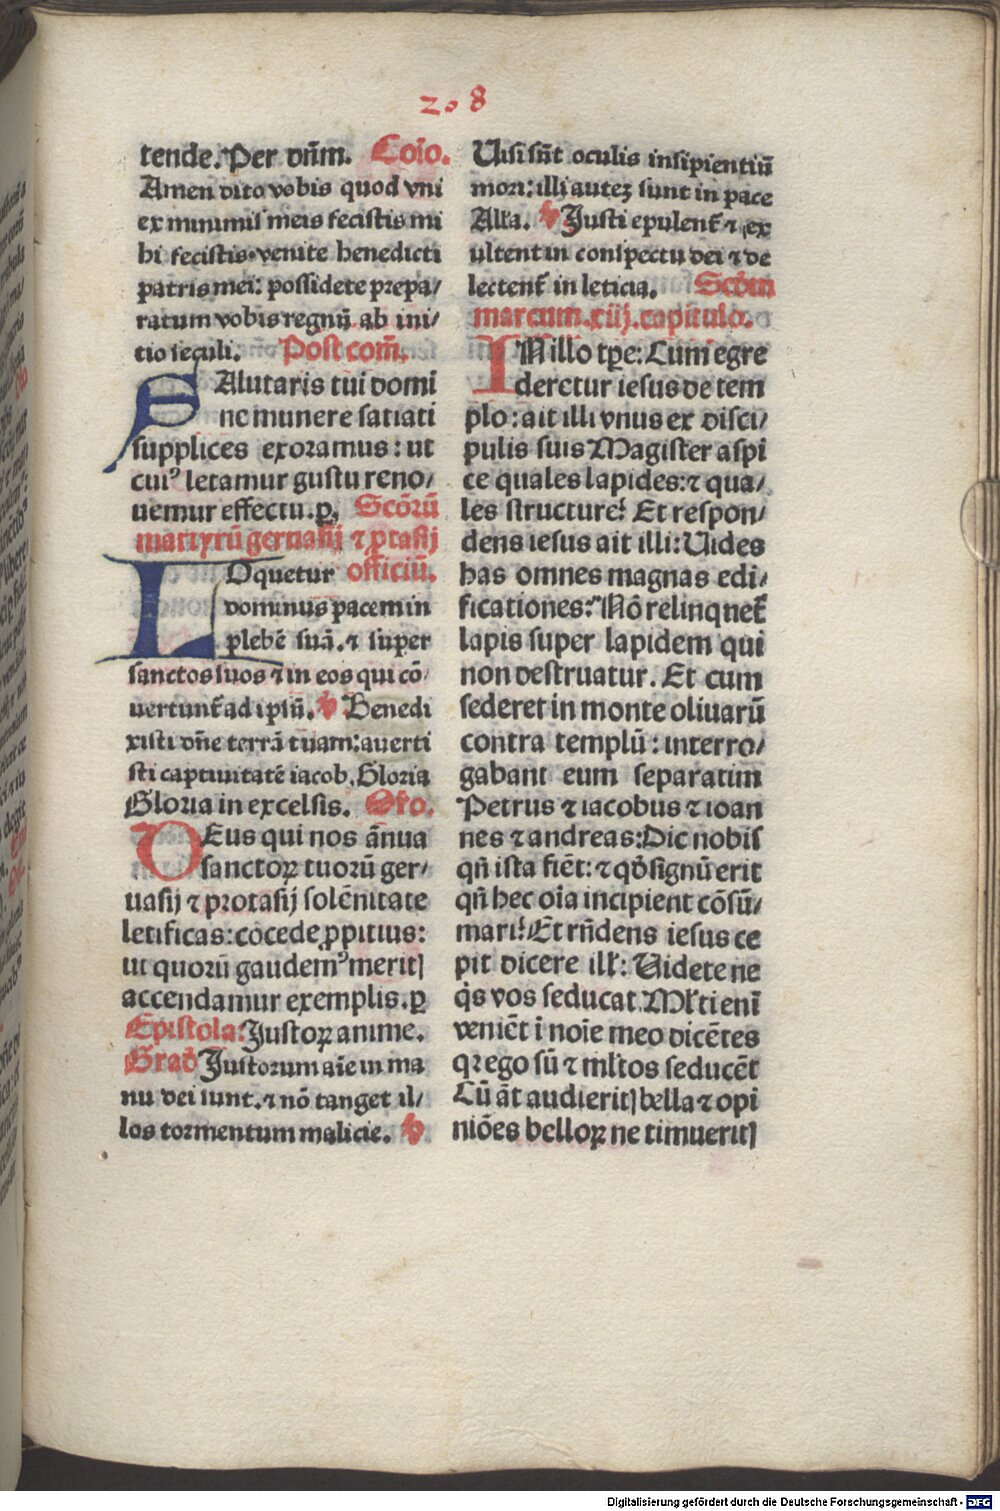 2. 8
tende. Per dñm. Cōio.
Amen dico vobis quod vni
ex minimis meis fecistis mi
hi fecistis. venite benedicti
patris mei: possidete prepa/
ratum vobis regnū ab ini/
tio seculi. Post com̄.
SAlutaris tui domi
ne munere satiati
supplices exoramus: ut
cui⁹ letamur gustu reno/
uemur effectu. ꝑ. Scōrū
martyrū geruasij ⁊ ꝓtasij
LOquetur officiū.
dominus pacem in
plebē suā. ⁊ super
sanctos suos ⁊ in eos qui cō/
uertunt̄ ad ipsū. v Benedi
xisti dñe terrā tuam: auerti
sti captiuitatē iacob. Gloria
Gloria in excelsis. Oŕo.
DEus qui nos ānua
sanctoꝝ tuorū ger/
uasij ⁊ protasij solēnitate
letificas: cōcede ꝓpitius:
ut quorū gaudem⁹ meritꝭ
accendamur exemplis. ꝑ
Epistola. Justoꝝ anime.
Grad̄ Justorum aīe in ma
nu dei sunt. ⁊ nō tanget il/
los tormentum malicie. v
Uisi sūt oculis insipientiū
mori: illi autez sunt in pace
Alĺa. v Justi epulent̄ ⁊ ex
ultent in conspectu dei ⁊ de
lectent̄ in leticia. Scḋm
marcum. xiij. capitulo.
IN illo tꝑe: Cum egre
deretur iesus de tem
plo: ait illi vnus ex disci/
pulis suis Magister aspi
ce quales lapides: ⁊ qua/
les structure? Et respon/
dens iesus ait illi: Uides
has omnes magnas edi/
ficationes? Nō relinquet̄
lapis super lapidem qui
non destruatur. Et cum
sederet in monte oliuarū
contra templū: interro/
gabant eum separatim
Petrus ⁊ iacobus ⁊ ioan
nes ⁊ andreas: Dic nobis
qñ ista fiēt: ⁊ qḋ signū erit
qñ hec oīa incipient cōsū/
mari? Et rñdens iesus ce
pit dicere illꝭ: Uidete ne
q̇s vos seducat. Mĺti enī
veniēt ī noīe meo dicētes
qꝛ ego sū ⁊ mĺtos seducēt
Cū āt audieritꝭ bella ⁊ opi
niōes belloꝝ ne timueritꝭ
Digitalisierung gefördert durch die Deutsche Forschungsgemeinschaft - DFG